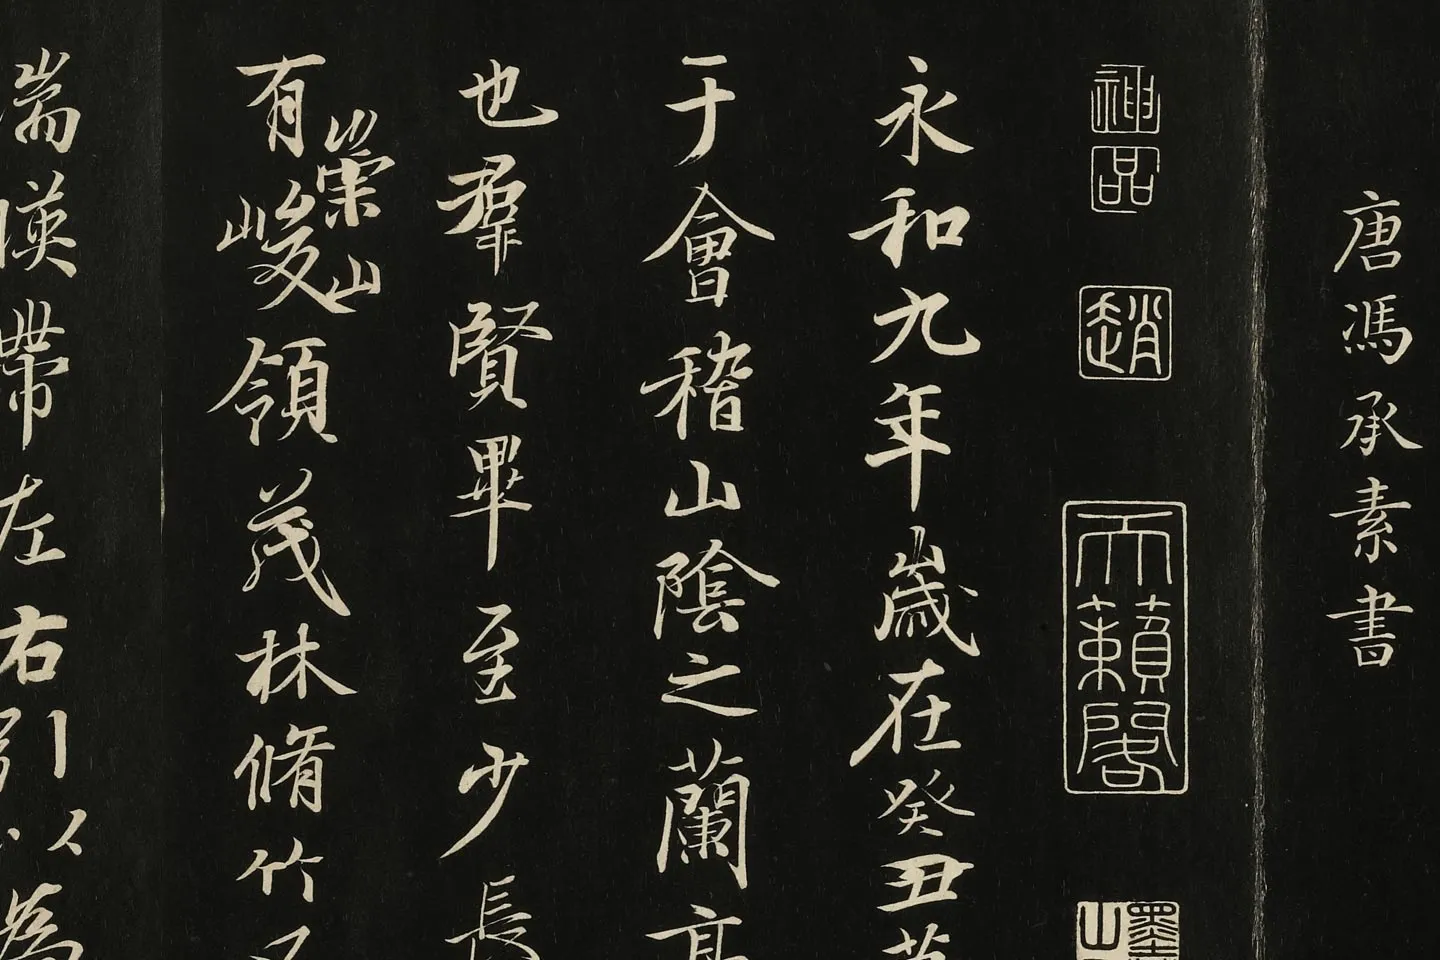 唐馮承素書
神品
趙
天籟閣
墨
山
永和九年歲在癸丑暮
于會稽山陰之蘭亭
也羣賢畢至少長
崇山
有峻領茂林脩竹又
湍暎帶左右引以為